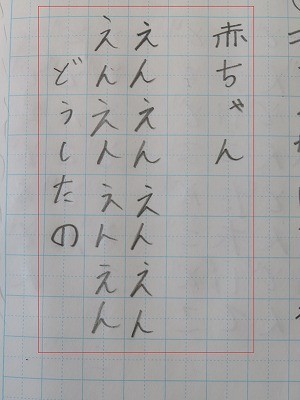 赤ちゃん
えんえんえんえん
えんえんえんえん
どうしたの